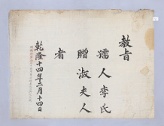 敎旨
孺人李氏
贈淑夫人
者
乾隆十四年二月十四日